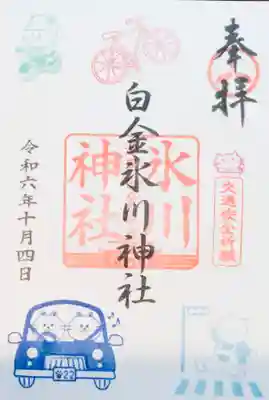 奉拝
白金氷川神社
氷川
神社
交通安全祈願
令和六年十月四日
22